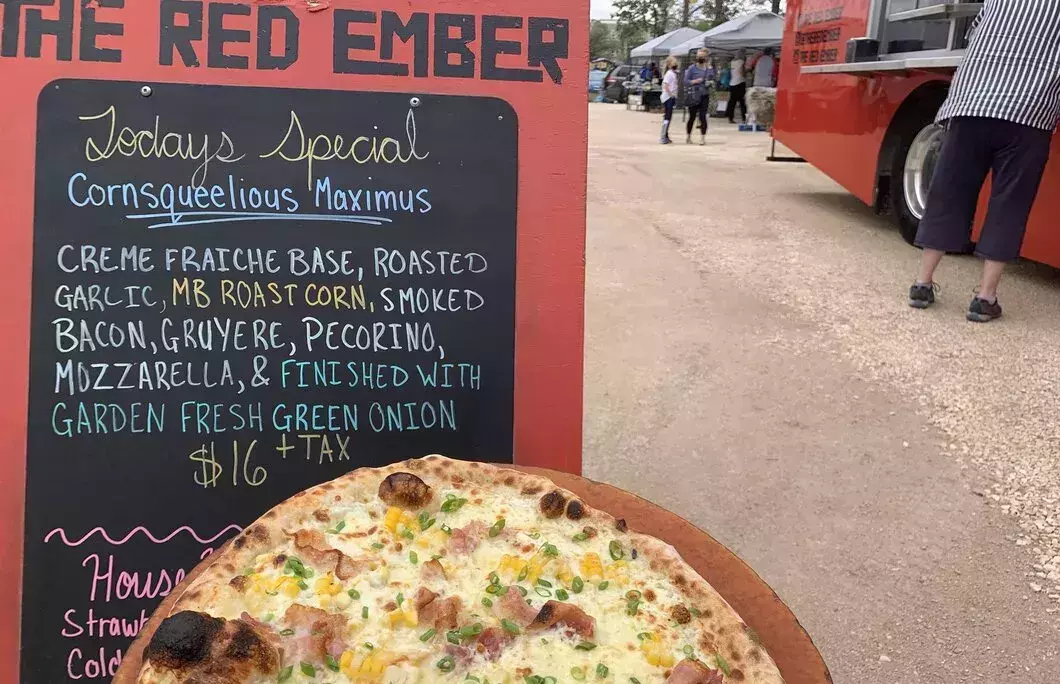 THE RED EMBER
Todays Special
Cornsqueelious Maximus
CREME FRAICHE BASE, ROASTED
GARLIC, MB ROAST CORN, SMOKED
BACON, GRUYERE, PECORINO,
MOZZARELLA, & FINISHED WITH
GARDEN FRESH GREEN ONION
$16 +TAX
House
Cold
THE RED EMBER